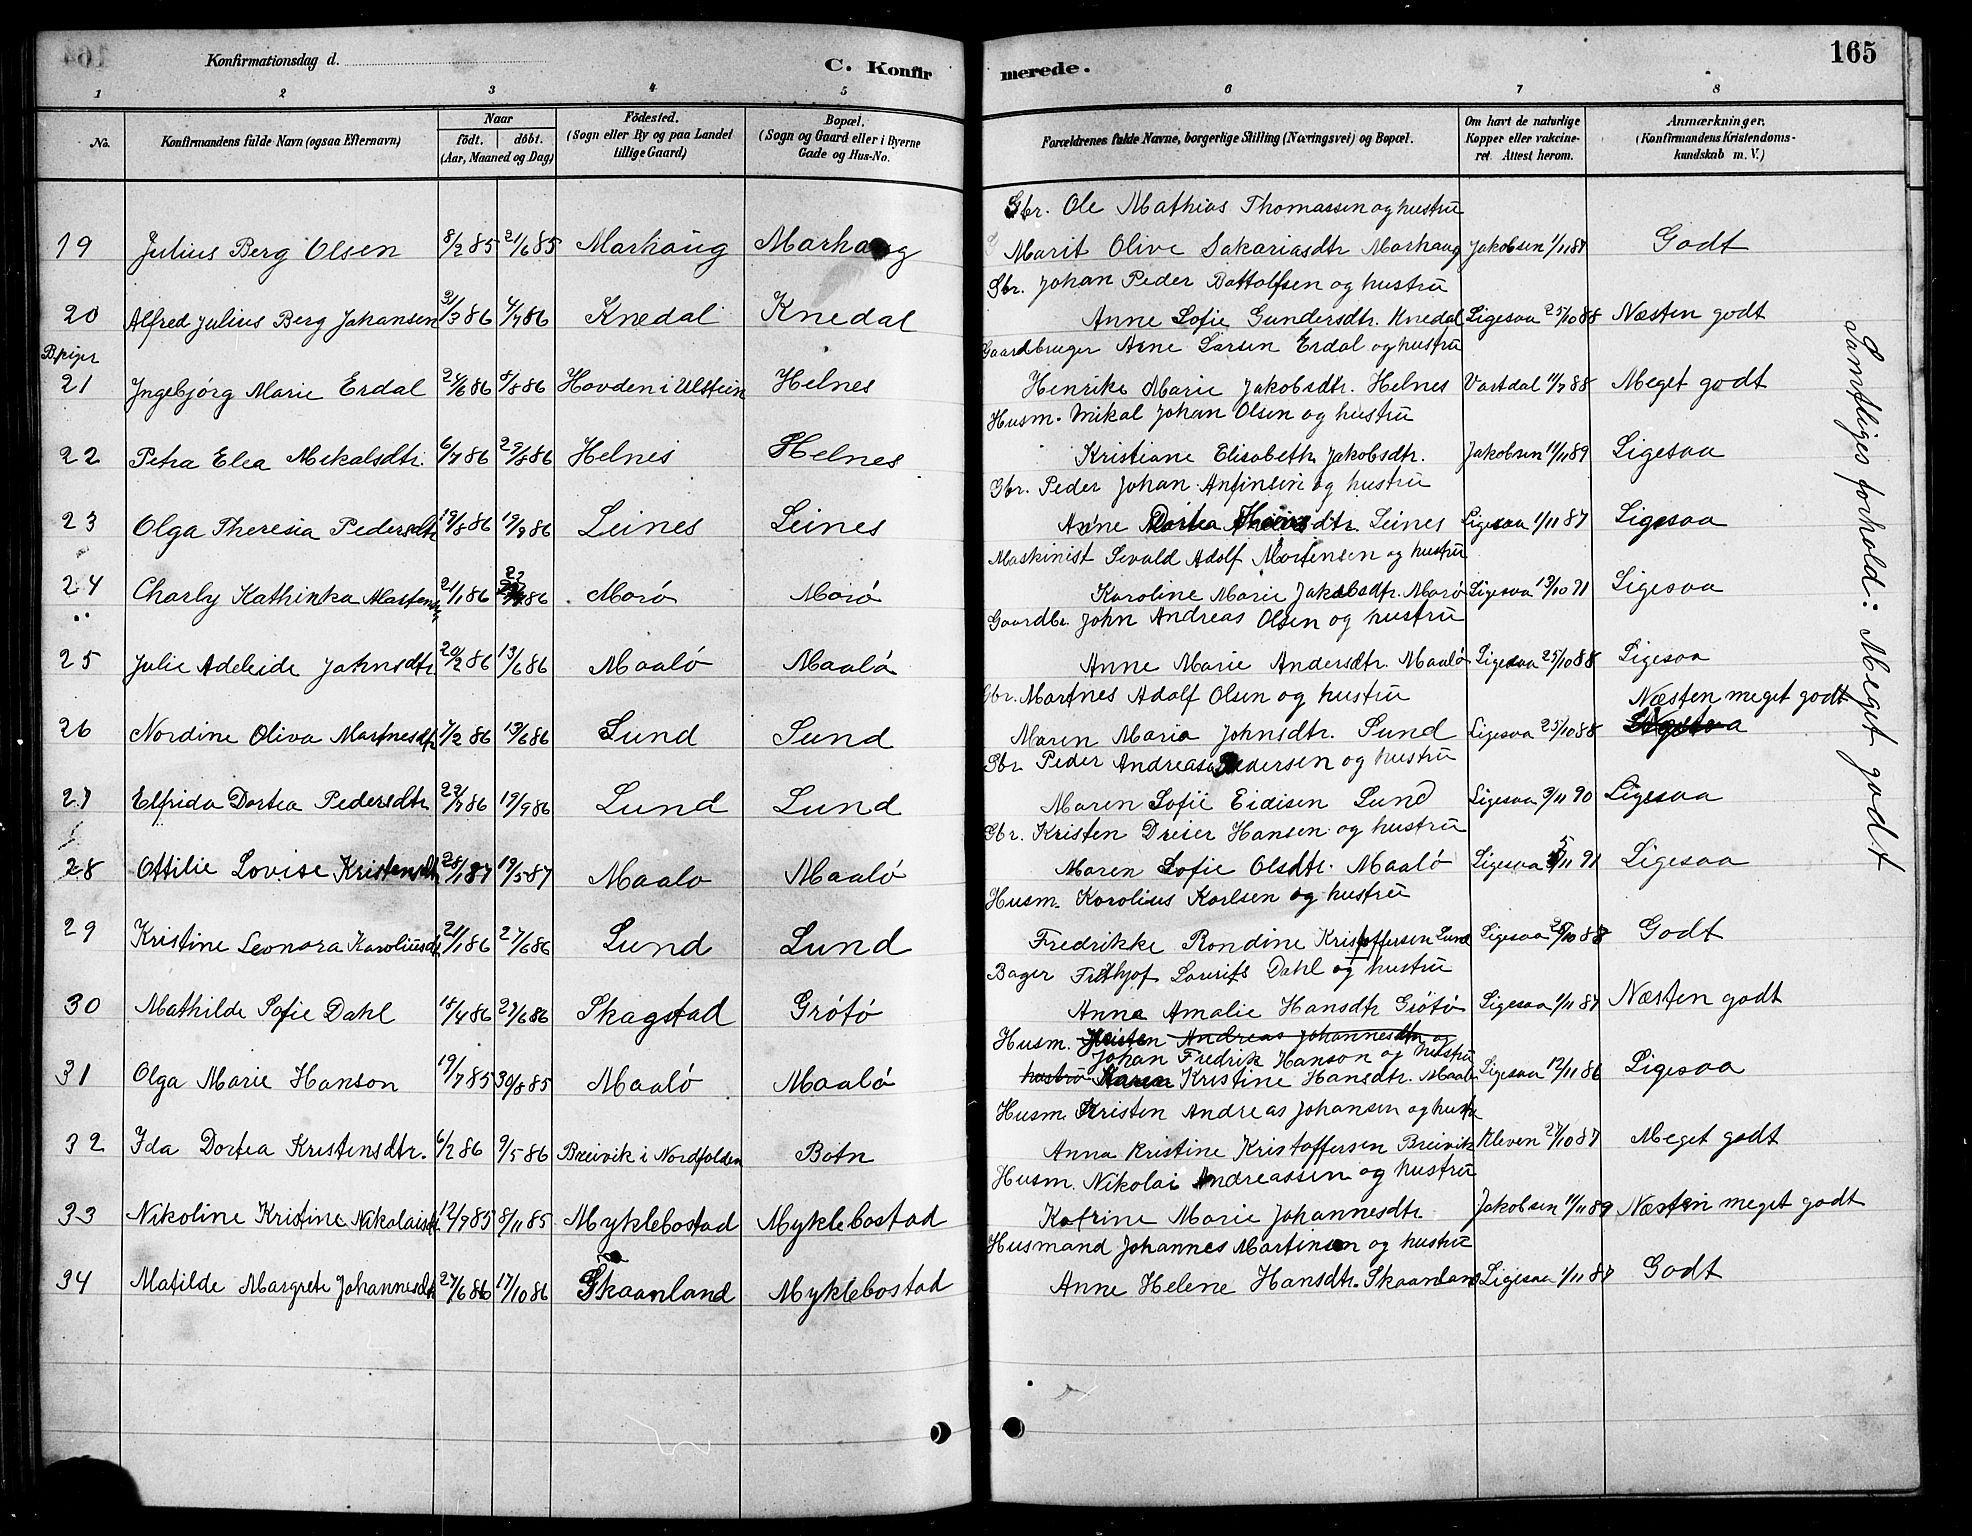 165
Konfirmationsdag d.
C. Konfirmerede.
1 2 3 4 5 6 7 8
No. Konfirmandens fulde Navn (ogsaa Efternavn) Naar födt. döbt. (Aar, Maaned og Dag) Födested. (Sogn eller By og paa Landet tillige Gaard) Bopæl. (Sogn og Gaard eller i Byerne Gade og Hus-No. Forældrenes fulde Navne, borgerlige Stilling (Næringsvei) og Bopæl. Om havt de naturlige Kopper eller vakcineret Attest herom. Anmærkninger. (Konfirmandens Kristendomskundskab m. V.)
Gbr. Ole Mathias Thomassen og hustru
19 Julius Berg Olsen 8/2 85 21/6 85 Marhaug Marhaug Marit Olive Sakariasdtr Marhaug Jakobsen 1/11 87 Godt
Gbr. Johan Peder Bottolfsen og hustru
20 Alfred Julius Berg Johansen 31/3 86 4/7 86 Knedal Knedal Anne Sofie Gundersdtr. Knedal Ligesaa 25/10 88 Næsten godt
B. piger
Gaardbruger Arne Larsen Erdal og hustru
21 Ingebjörg Marie Erdal 24/6 86 8/8 86 Hovden i Ulstein Helnes Henrike Marie Jakobsdtr. Helnes Vartdal 11/7 88 Meget godt
Husm. Mikal Johan Olsen og hustru
22 Petra Elea Mekalsdtr. 6/7 86 29/8 86 Helnes Helnes Kristiane Elisabeth Jakobsdtr. Jakobsen 11/11 89 Ligesaa
Gbr. Peder Johan Anfinsen og hustru
23 Olga Theresia Pedersdtr 19/8 86 19/9 86 Leines Leines Anne Dortea dtr. Leines Ligesaa 1/11 87 Ligesaa
Maskinist Sevald Adolf Mortensen og hustru
24 Charly Kathinka 21/1 86 86 Morö Morö Karoline Marie Jakobsdtr. Morö Ligesaa 13/10 91 Ligesaa
Gaardbr. John Andreas Olsen og hustru
25 Julie Adeleide Johnsdtr. 20/2 86 13/6 86 Maalö Maalö Anne Marie Andersdtr. Maalö Ligesaa 25/10 88 Ligesaa
Gbr. Martnes Adolf Olsen og hustru Næsten meget godt
26 Nordine Oliva Martnesdtr 7/2 86 13/6 86 Lund Lund Maren Maria Johnsdtr. Lund Ligesaa 25/10 88
Gbr. Peder Andreas Pedersen og hustru
27 Elfrida Dortea Pedersdtr. 29/7 86 19/9 86 Lund Lund Maren Sofie Eidisen Lund Ligesaa 3/11 90 Ligesaa
Gbr. Kristen Dreier Hansen og hustru
28 Ottilie Lovise Kristensdtr 28/1 87 19/5 87 Maalö Maalö Maren Sofie Olsdtr. Maalö Ligesaa 5/11 91 Ligesaa
Husm. Karolius Karlsen og hustru
29 Kristine Leonora Karoliusdtr 21/1 86 27/6 86 Lund Lund Fredrikke Rondine Kristoffersen Lund Ligesaa 25/10 88 Godt
Bager Frithjof Laurits Dahl og hustru
30 Mathilde Sofie Dahl 18/4 86 27/6 86 Skagstad Grötö Anna Amalie Hansdtr Grötö Ligesaa 1/11 87 Næsten godt
Husm. Kristen Andreas Johannesdtr og
Johan Fredrik Hanson og hustru
31 Olga Marie Hanson 19/7 85 30/8 85 Maalö Maalö hustru Maren Kristine Hansdtr. Maalö Ligesaa 12/11 86 Ligesaa
Husm. Kristen Andreas Johansen og hustru
32 Ida Dortea Kristensdtr. 6/2 86 9/5 86 Breivik i Nordfolden Botn Anna Kristine Kristoffersen Breivik Kleven 27/10 87 Meget godt
Husm. Nikolai Andreassen og hustru
33 Nikoline Kristine Nikolaisdtr 12/9 85 8/11 85 Myklebostad Myklebostad Katrine Marie Johannesdtr. Jakobsen 11/11 89 Næsten meget godt
Husmand Johannes Martinsen og hustru
34 Matilde Margrete Johannesdtr 27/6 86 17/10 86 Skaanland Myklebostad Anne Helene Hansdtr. Skaanland Ligesaa 1/11 87 Godt
Samtliges forhold: Meget godt